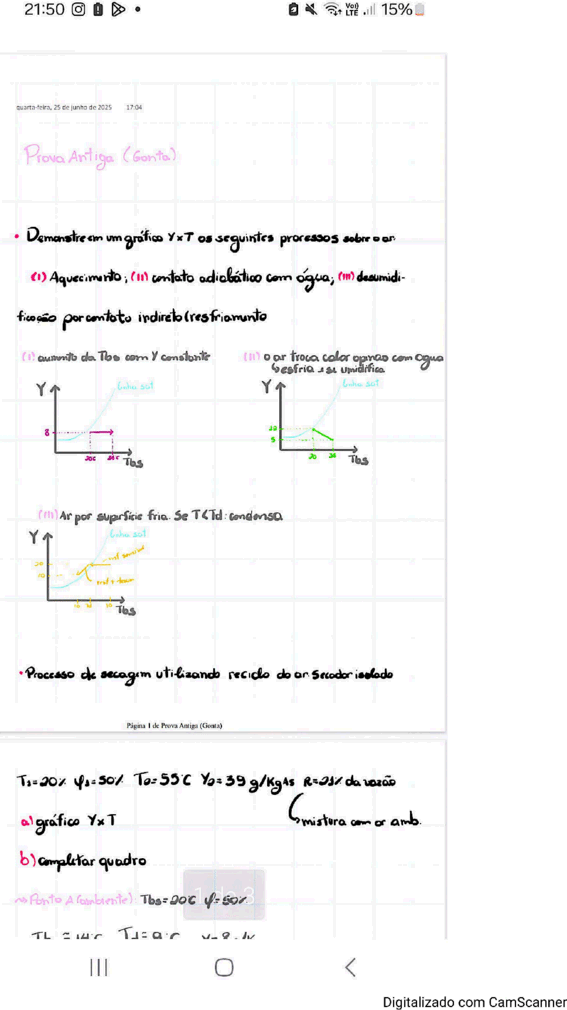 21:50 15%
quarta-feira, 25 de junho de 2025 17:04
Prova Antiga (Gonta)
• Demonstre em um gráfico Y x T os seguintes processos sobre o ar
(I) Aquecimento; (II) contato adiabático com água; (III) desumidi-
ficação por contato indireto (resfriamento
(I) aumento da Tbs com Y constante
(II) o ar troca calor apenas com água
esfria e se umidifica
Y Linha sat
8
20C
Tbs
Y Linha sat
5
20 Tbs
(III) Ar por superfície fria. Se T<Td: condensa
Y Linha sat
Tbs
• Processo de secagem utilizando reciclo do ar secador isolado
Página 1 de Prova Antiga (Gonta)
T₁=20% φ₁=50% T₀=55°C Y₂=39 g/KgAs da vazão
mistura com ar amb.
a) gráfico Y x T
b) completar quadro
→ Ponto A (ambiente) Tbs=20C φ=50%
Digitalizado com CamScanner